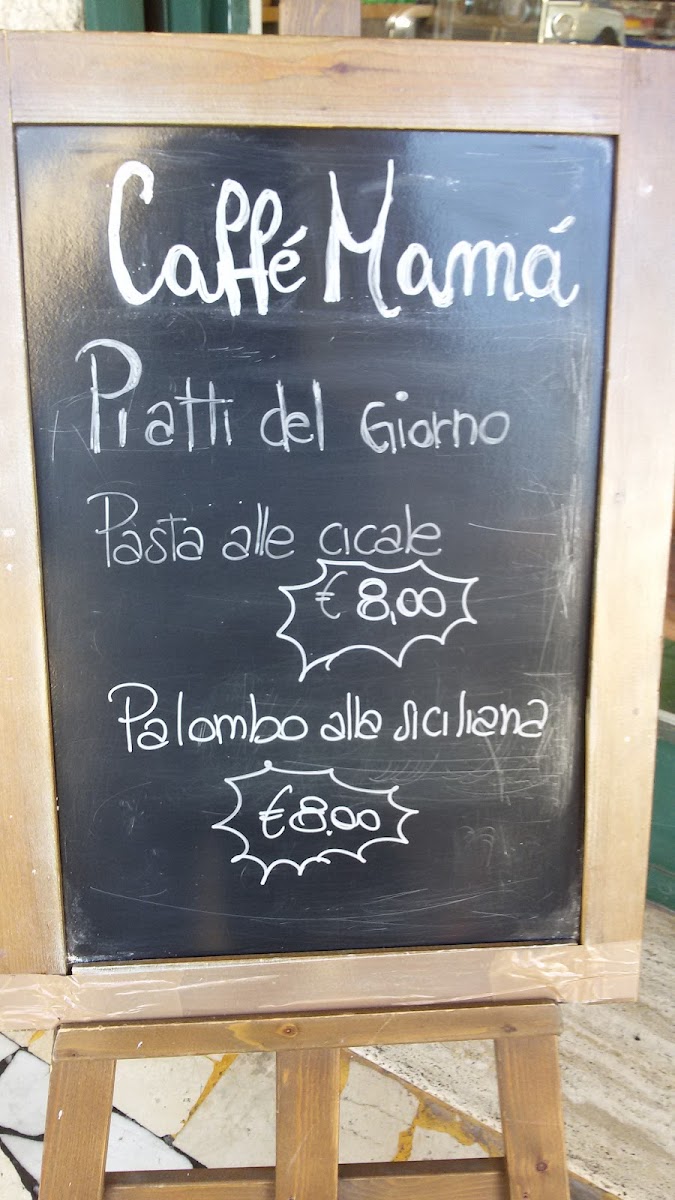 Caffé Mamá
Piatti del Giorno
Pasta alle cicale
€ 8,00
Palombo alla siciliana
€8.00